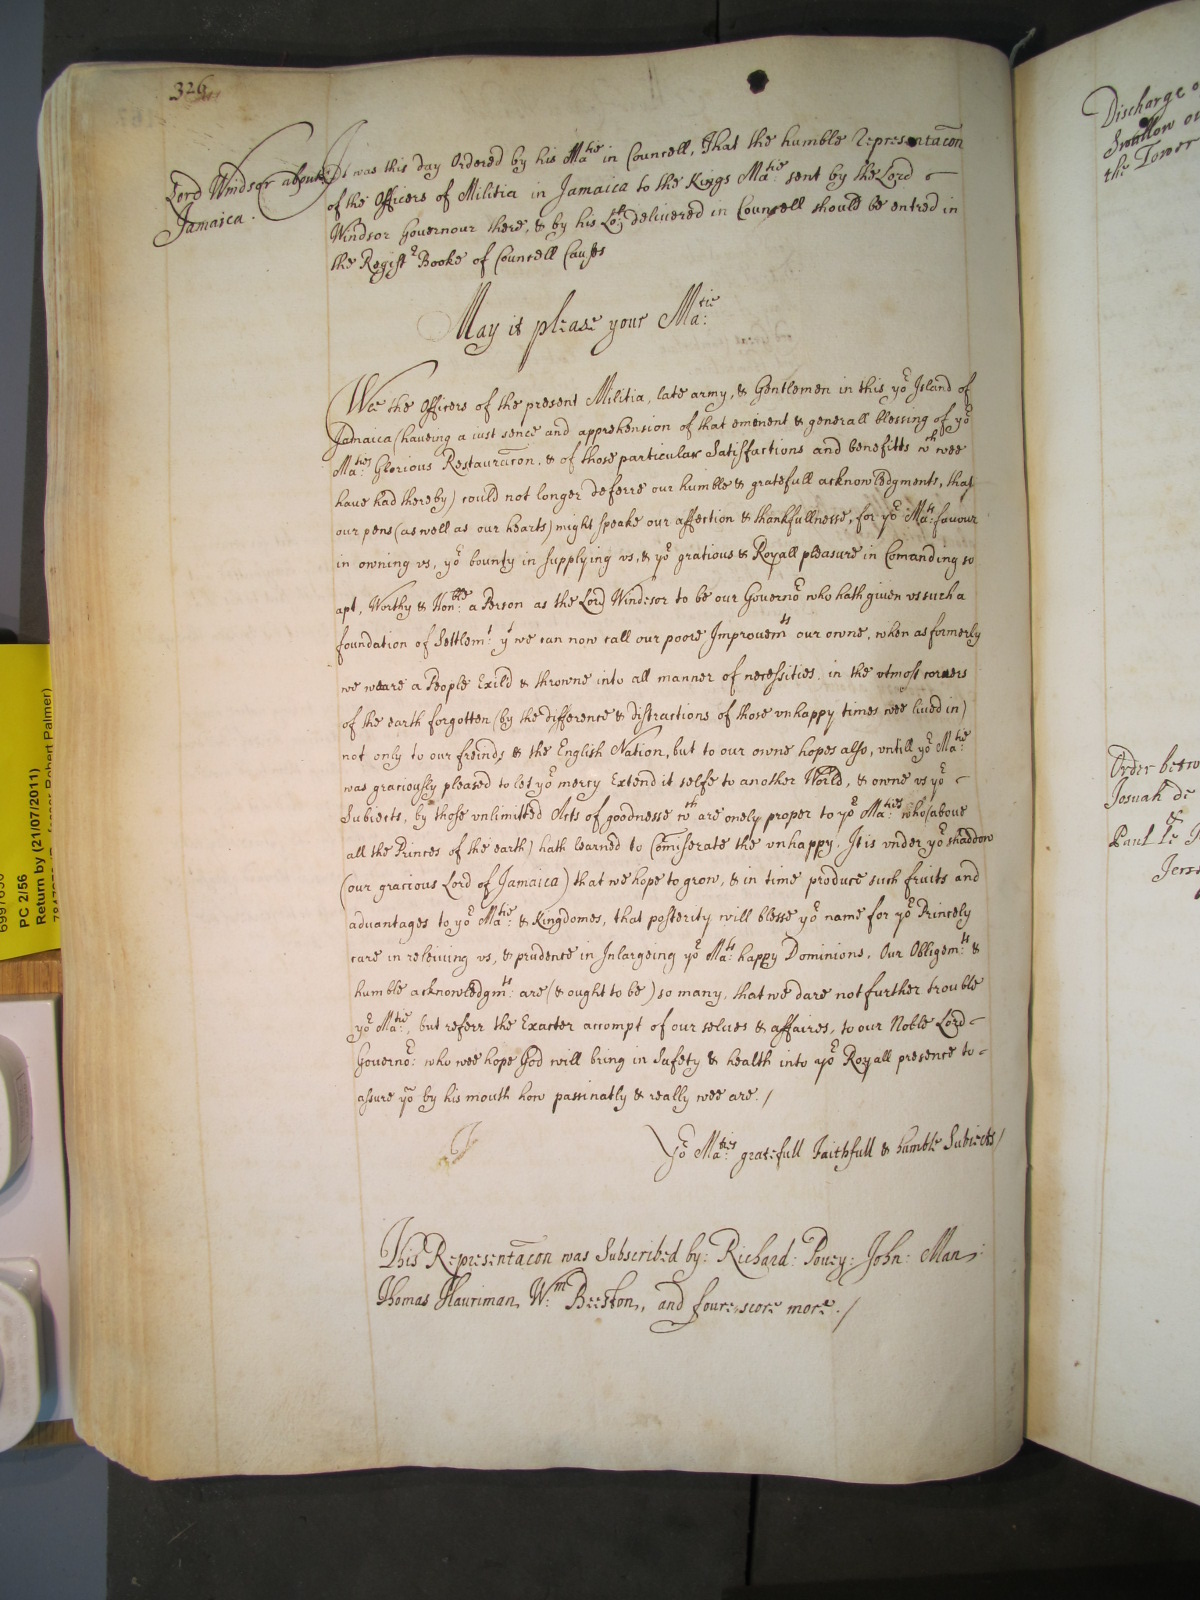 326
Lord Windsor about
Jamaica.
It was this day Ordered by his Ma:tie in Councell, That the humble Representac̃on
of the Officers of Militia in Jamaica to the Kings Ma:tie sent by the Lord
Windsor Governour there, & by his Lo:p delivered in Councell should be entred in
the Regist.r Booke of Councell Causes
May it please your Ma:tie
Wee the Officers of the present Militia, late army, & Gentlemen in this yor Island of
Jamaica (haveing a iust sence and apprehension of that eminent & generall blessing of yor
Ma:ties Glorious Restaurac̃on, & of those particular Satisfactions and benefitts wch wee
have had thereby) could not longer deferre our humble & gratefull acknowledgments, that
our pens (as well as our hearts) might speake our affection & thankfullnesse, for yor Ma:ts favour
in owning vs, yor bounty in supplying vs, & yor gratious & Royall pleasure in Comanding so
apt, Worthy & Hon:ble a Person as the Lord Windsor to be our Governor who hath given vs such a
foundation of Settlemt yt we can now call our poore Improuemts our owne, when as formerly
we weare a People Exild & throwne into all manner of necessities, in the vtmost corners
of the earth forgotten (by the difference & distractions of those vnhappy times wee lived in)
not only to our freinds & the English Nation, but to our owne hopes also, vntill yor Ma:tie
was graciously pleased to let yor mercy Extend it selfe to another World, & owne vs yor
Subiects, by those vnlimitted Acts of goodnesse wch are onely proper to yor Ma:ties who (above
all the Princes of the earth) hath learned to Comiserate the vnhappy. It is vnder yor shaddow
(our gracious Lord of Jamaica) that we hope to grow, & in time produce such fruits and
advantages to yor Ma:tie & Kingdomes, that posterity will blesse yor name for yor Princely
care in releiving vs, & prudence in Inlargeing yor Ma:ts happy Dominions. Our Obligem:ts &
humble acknowledgm:ts are (& ought to be) so many, that we dare not further trouble
yor Ma:tie, but referr the Exacter accompt of our selues & affaires, to our Noble Lord
Governor: who wee hope God will bring in Safety & health into yor Royall presence to
assure you by his mouth how passinatly & really wee are. /
Yor Ma:ties gratefull Faithfull & humble Subiects /
This Representac̃on was Subscribed by: Richard: Povey: John: Man:
Thomas W:m Beeston, and foure score more. /
Discharge
Swallow
the Tower
Order betw
Josuah de
Paul
PC 2/56
Return by (21/07/2011)
Robert Palmer)